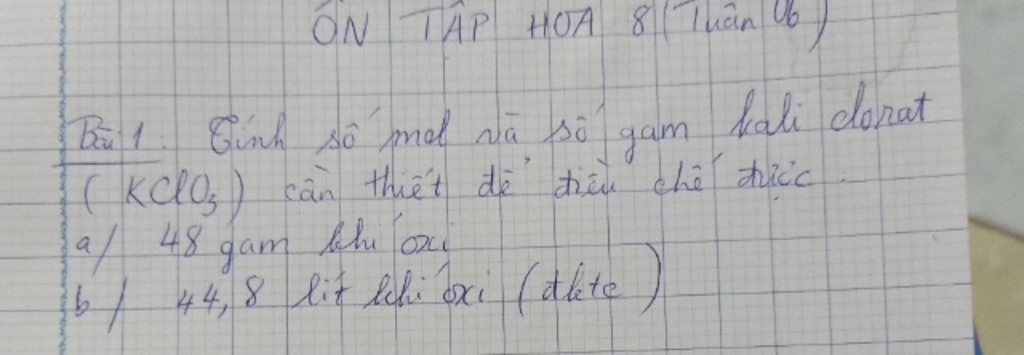 ÔN TẬP HÓA 8 (Tuần 06)
Bài 1. Tính số mol và số gam kali clorat
(KClO₃) cần thiết để điều chế được.
a/ 48 gam khí oxi
b/ 44,8 lít khí oxi (đktc)